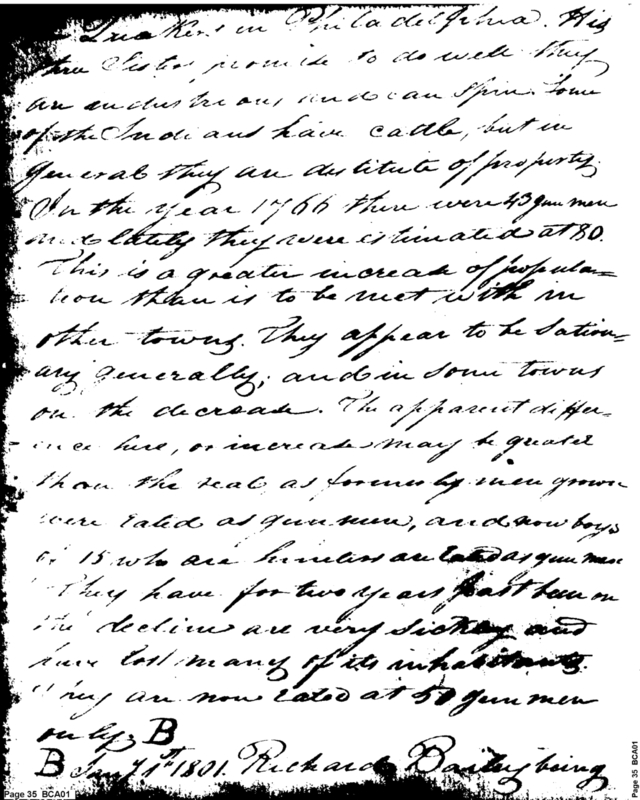 Quakers in Philadelphia. His
three Sisters, promise to do well they
are industrious and can spin. Some
of the Indians have cattle, but in
general they are destitute of property.
In the year 1766 there were 43 gun men
and lately they were estimated at 80.
This is a greater increase of popula=
tion than is to be met with in
other towns. They appear to be Sation=
ary generally; and in some towns
on the decrease. The apparent differ=
ence here, or increase may be greater
than the real as formerly men grown
were rated as gun men, and now boys
of 15 who are hunters are rated as gun men
They have for two years past been on
the decline are very sickly and
have lost many of its inhabitants.
They are now rated at 50 gun men
only. B
B Jany. 1st 1801. Richard Bailey being
Page 35 BCA01
Page 35 BCA01